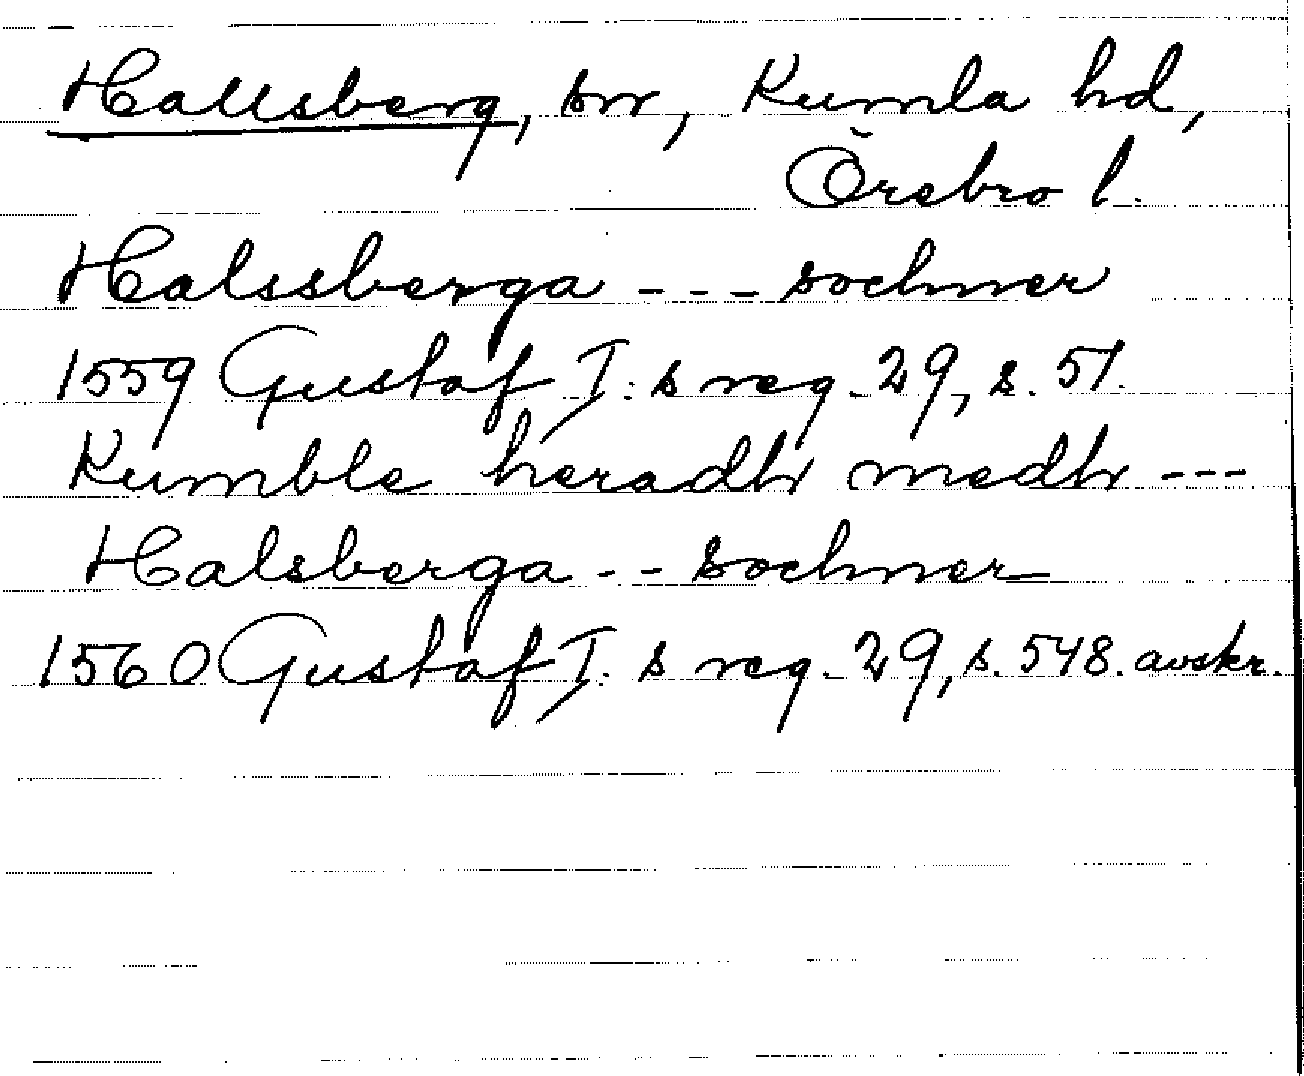 Hallsberg, sn, Kumla hd,
Örebro l.
Halssberga --- sochner
1559 Gustaf I:s reg. 29, s. 51.
Kumble heradh medh ---
Halsberga -- sochner
1560 Gustaf I:s reg. 29, s. 548. avskr.